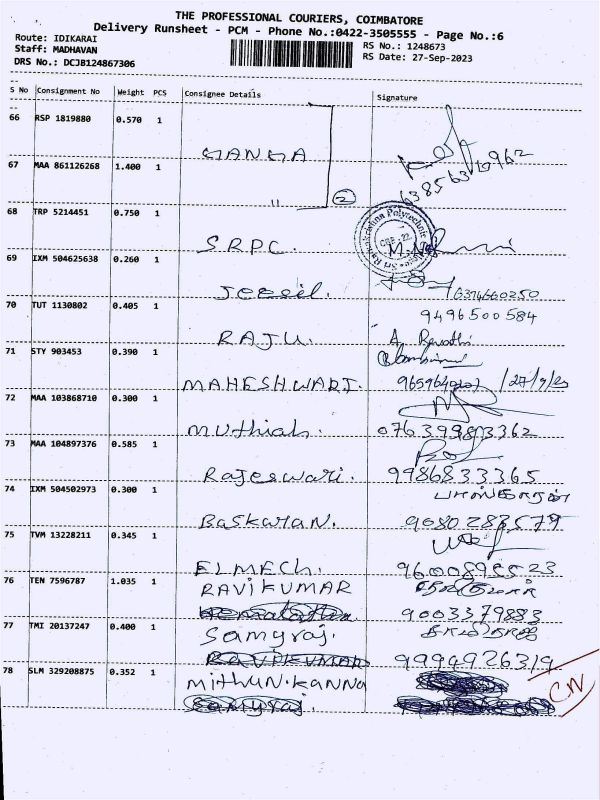 THE PROFESSIONAL COURIERS, COIMBATORE
Delivery Runsheet - PCM - Phone No.:0422-3505555 - Page No.:6
Route: IDIKARAI
Staff: MADHAVAN
DRS No.: DCJB124867306
RS No.: 1248673
RS Date: 27-Sep-2023
S No Consignment No Weight PCS Consignee Details Signature
66 RSP 1819880 0.570 1
GANGA
67 MAA 861126268 1.400 1
" 2
68 TRP 5214451 0.750 1
SRPC.
69 IXM 504625638 0.260 1
6374660250
70 TUT 1130802 0.405 1 9496500584
RAJU. A. Revathi
71 STY 903453 0.390 1
MAHESHWARI. /27/9/23
72 MAA 103868710 0.300 1
Muthiah. 07639983362
73 MAA 104897376 0.585 1
Rajeswari. 9986833365
74 IXM 504502973 0.300 1 பாஸ்கரன்
Baskaran. 9080283579
75 TVM 13228211 0.345 1
ELMECH. 9600895523
76 TEN 7596787 1.035 1 RAVIKUMAR
9003379883
77 TMI 20137247 0.400 1 Samyraj.
RAVIKUMAR 9994926319
78 SLM 329208875 0.352 1 Mithun.Kanna
Samyraj. CN